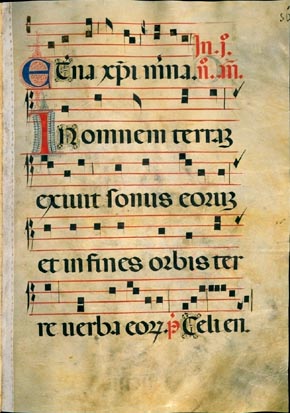 In. j°.
Etna xp̄i mn̄a. n°. m̄.
In omnem terraꝫ
exiuit sonus eoruꝫ
et in fines orbis ter
re uerba eoꝝ. p̄ Celi en.